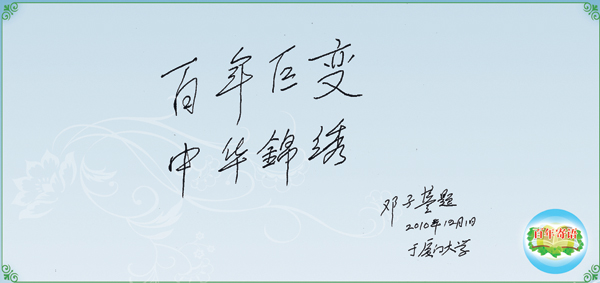 百年巨变
中华錦绣
邓子基题
2010年12月1日
于厦门大学
百年寄语